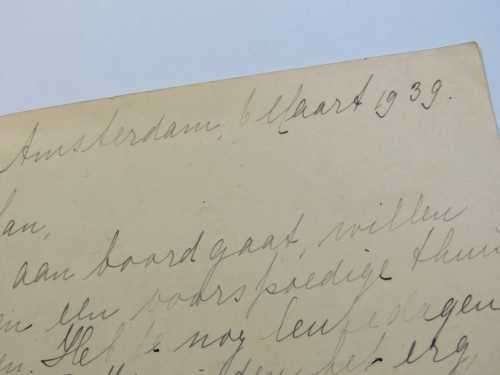 Amsterdam, 6 Maart 1939.
an,
aan boord gaat, willen
en een voorspoedige thui
en. Heb je nog leuke dagen
het erg